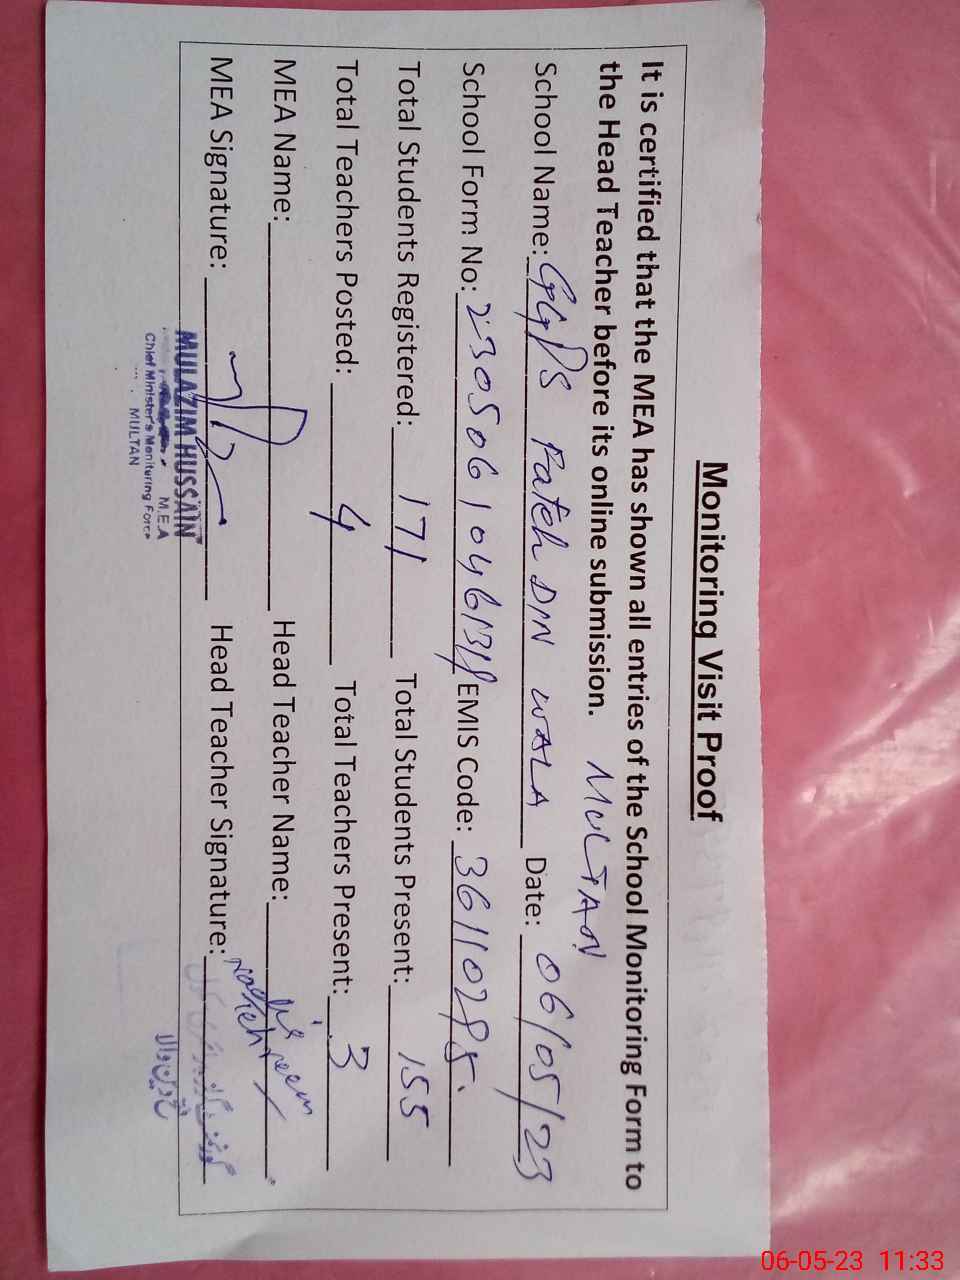 Monitoring Visit Proof
It is certified that the MEA has shown all entries of the School Monitoring Form to
the Head Teacher before its online submission. MULTAN
School Name: GGPS Fateh DIN WALA Date: 06/05/23
School Form No: EMIS Code: 36110285.
Total Students Registered: 171 Total Students Present: 155
Total Teachers Posted: 4 Total Teachers Present: 3
MEA Name: Head Teacher Name:
MEA Signature: Head Teacher Signature:
MULAZIM HUSSAIN
M.E.A
Chief Minister's Monitoring Force
MULTAN
06-05-23 11:33